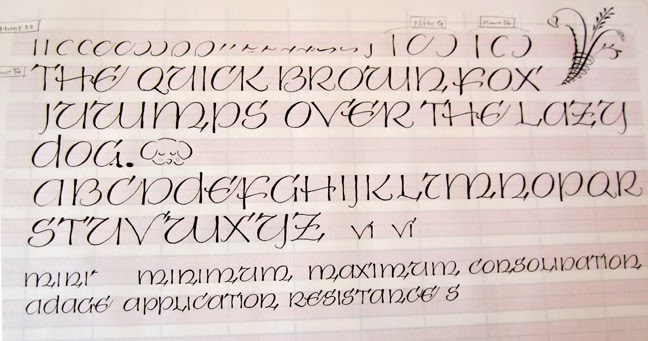 Hunt 22 Nikko G Hunt 56
THE QUICK BROWN FOX
JUUMPS OVER THE LAZY
DOG.
ABCDdEFGHIJKLMNOPQR
STUVWXYZ vi vi
mini minimum maximum consolidation
adage application resistance s